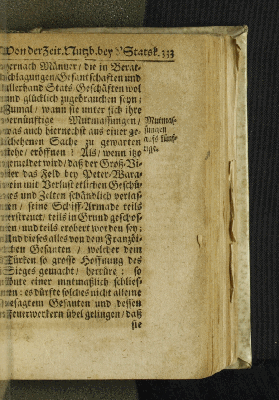 Von der Zeit. Nutzb. bey Statsk. 333
hernach Männer / die in Berat-
schlagungen / Gesantschaften und
allerhand Stats-Geschäften wol
und glücklich zugebrauchen seyn:
Zumal / wann sie unter sich ihre
vernünftige Mutmassungen /
was auch hiernechst aus einer ge-
schehenen Sache zu gewarten
stehe / eröffnen: Als / wenn itzo
gemeldet wird / daß der Groß-Vi-
zier das Feld bey Peter-Wara-
dein mit Verlust etlichen Geschü-
tzes und Zelten schändlich verlas-
sen / seine Schiff-Armade teils
zerstreut / teils in Grund geschos-
sen / und teils erobert worden sey:
Und dieses alles von dem Französi-
schen Gesanten / welcher dem
Türken so grosse Hoffnung des
Sieges gemacht / herrüre: so
könte einer mutmaßlich schlies-
sen: es dürfte solches nicht alleine
besagtem Gesanten und dessen
Feuerwerkern übel gelingen / daß
sie
Mutmas-
sungen
aufs künf-
tige.